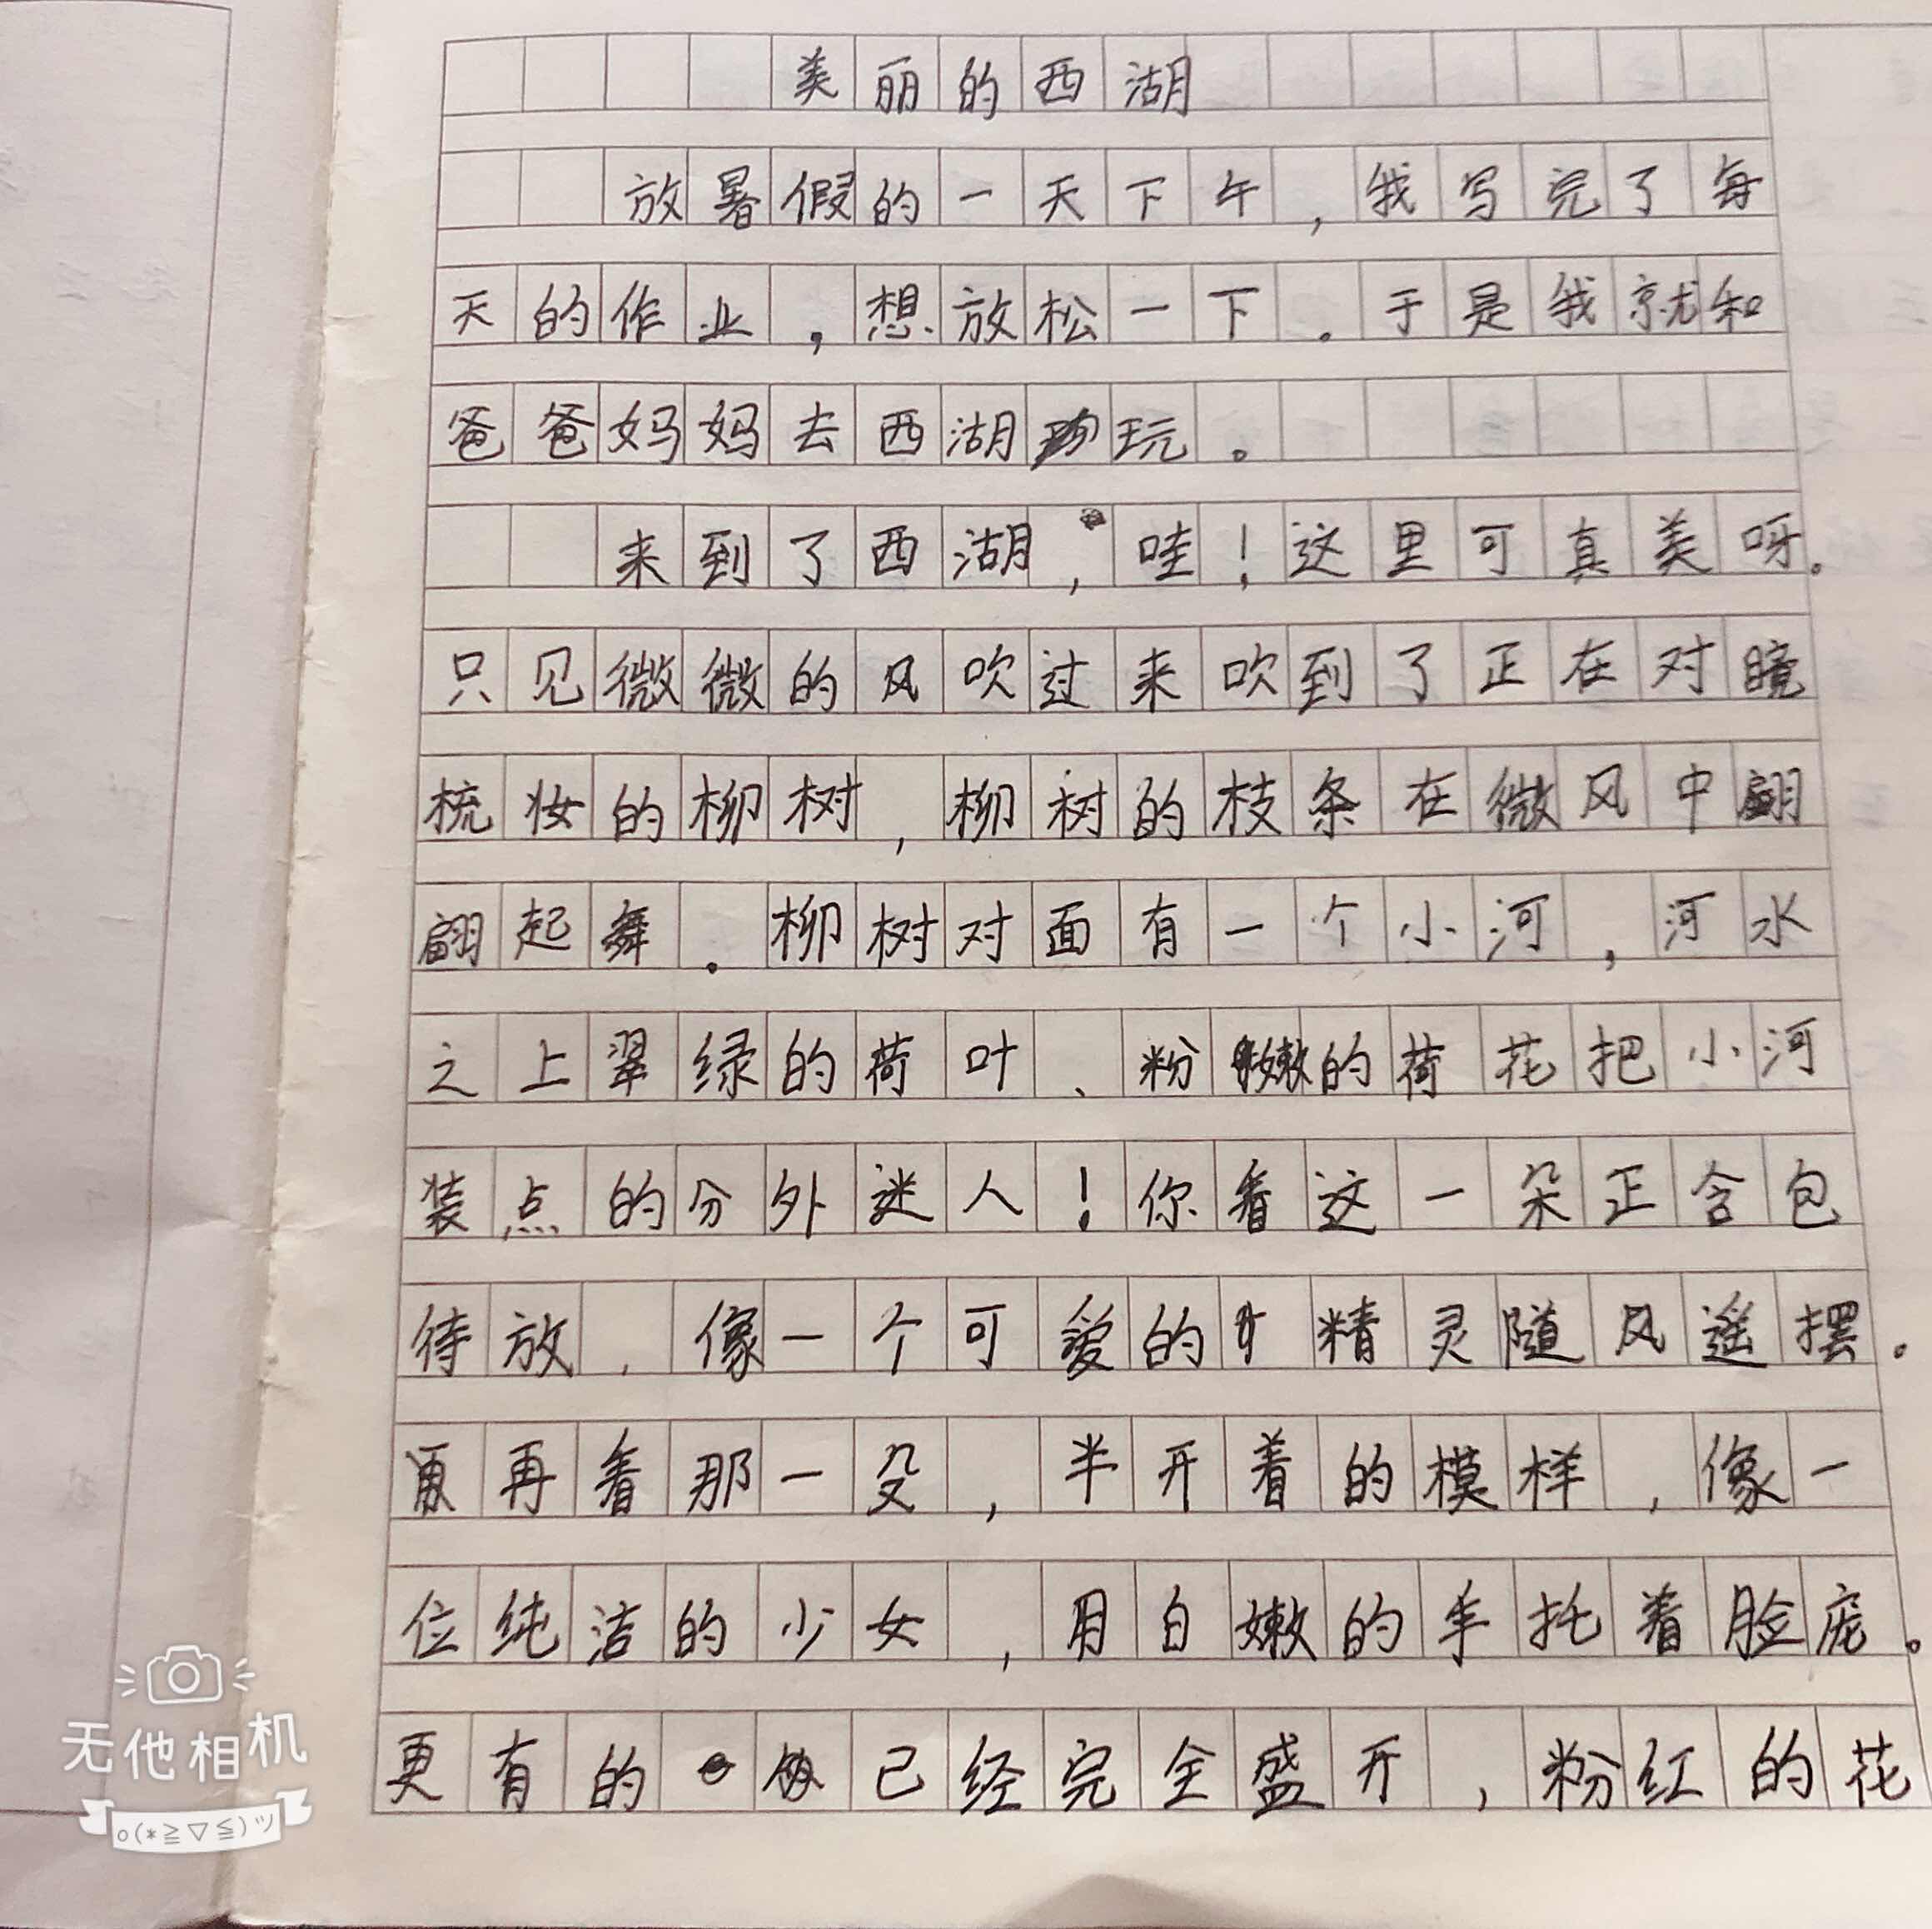 美丽的西湖
放暑假的一天下午，我写完了每
天的作业，想放松一下。于是我就和
爸爸妈妈去西湖玩。
来到了西湖，哇！这里可真美呀。
只见微微的风吹过来吹到了正在对镜
梳妆的柳树，柳树的枝条在微风中翩
翩起舞。柳树对面有一个小河，河水
之上翠绿的荷叶、粉嫩的荷花把小河
装点的分外迷人！你看这一朵正含包
待放，像一个可爱的精灵随风遥摆。
再看那一朵，半开着的模样，像一
位纯洁的少女，用白嫩的手托着脸庞。
更有的已经完全盛开，粉红的花
无他相机
o(*≧▽≦)ツ